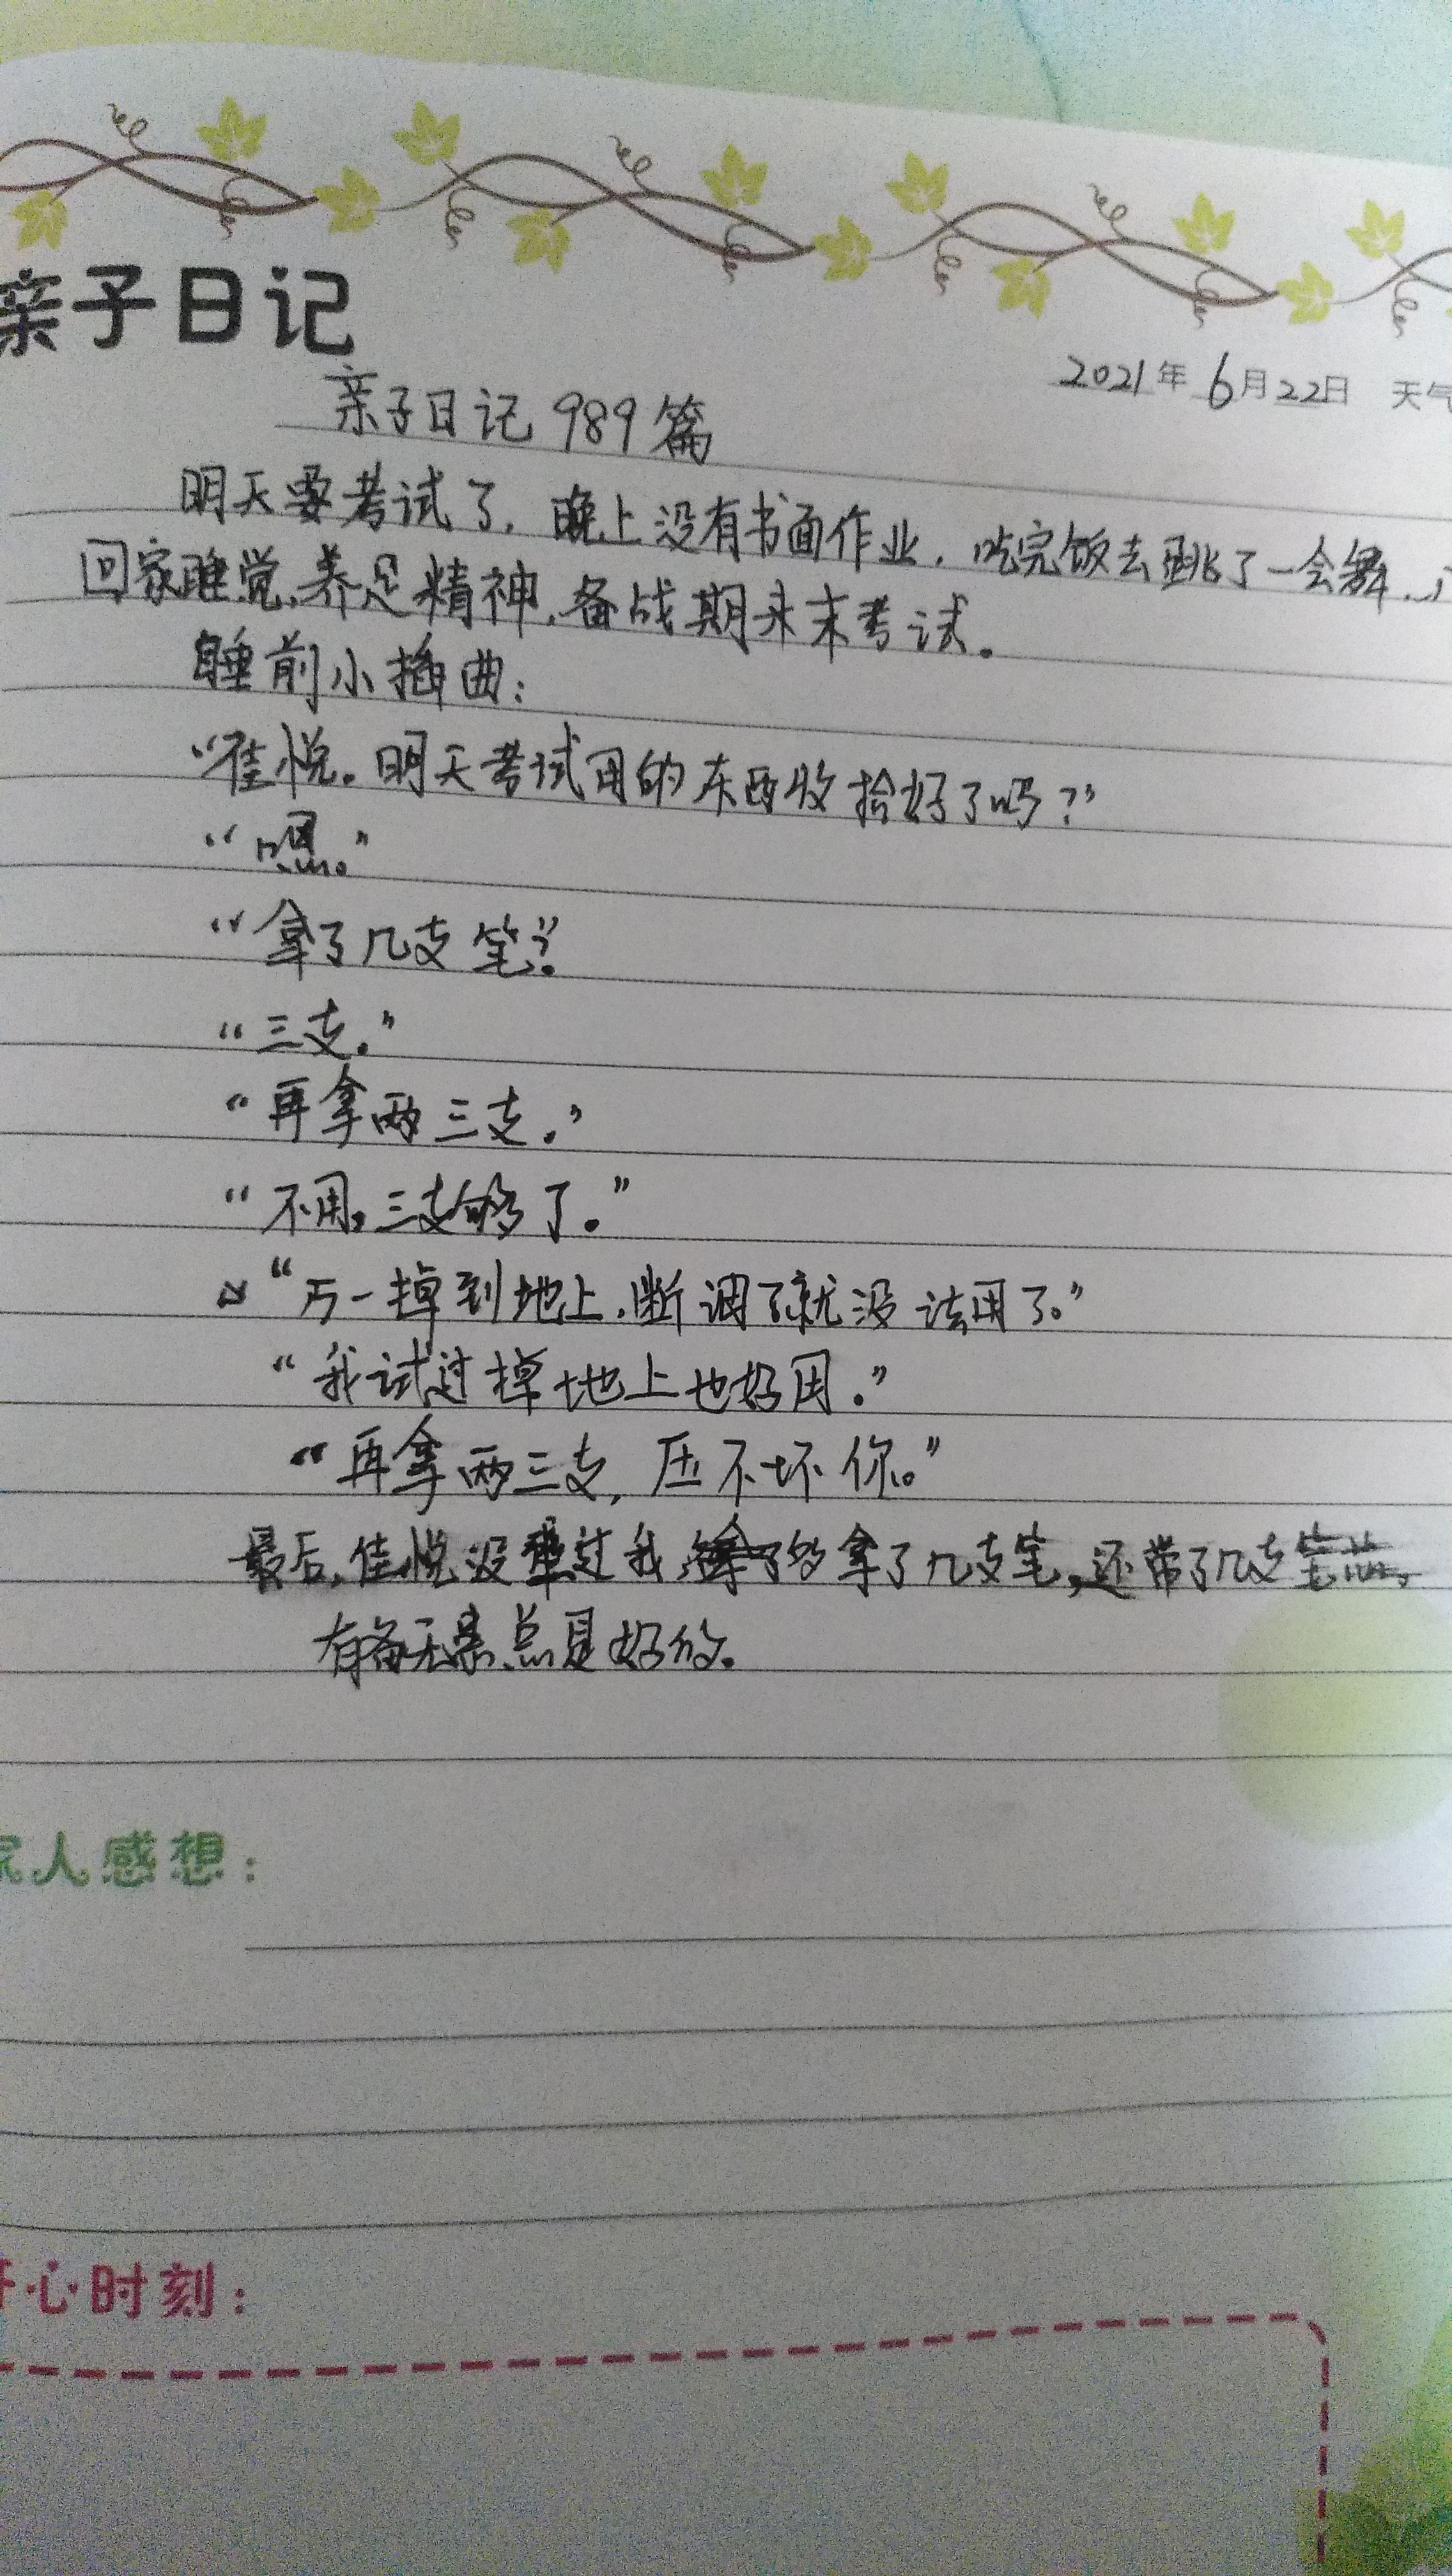 亲子日记
2021年6月22日 天气
亲子日记989篇
明天要考试了,晚上没有书面作业,吃完饭去跳了一会舞,
回家睡觉,养足精神,备战期末考试。
睡前小插曲:
“佳悦。明天考试用的东西收拾好了吗?”
“嗯。”
“拿了几支笔?”
“三支。”
“再拿两三支。”
“不用,三支够了。”
“万一掉到地上,断调了就没法用了。”
“我试过掉地上也好用。”
“再拿两三支,压不坏你。”
最后,佳悦没犟过我,多拿了几支笔,还带了几支笔芯,
有备无患总是好的。
家人感想:
开心时刻: